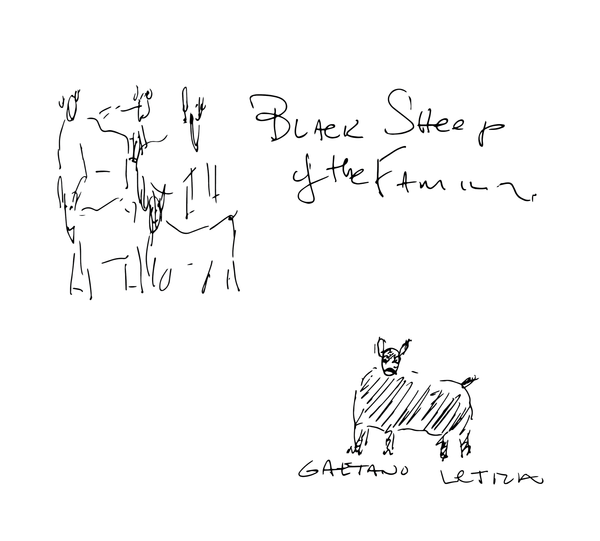 BLACK SHEEP
of the FAMILY.
GAETANO LETIZIA